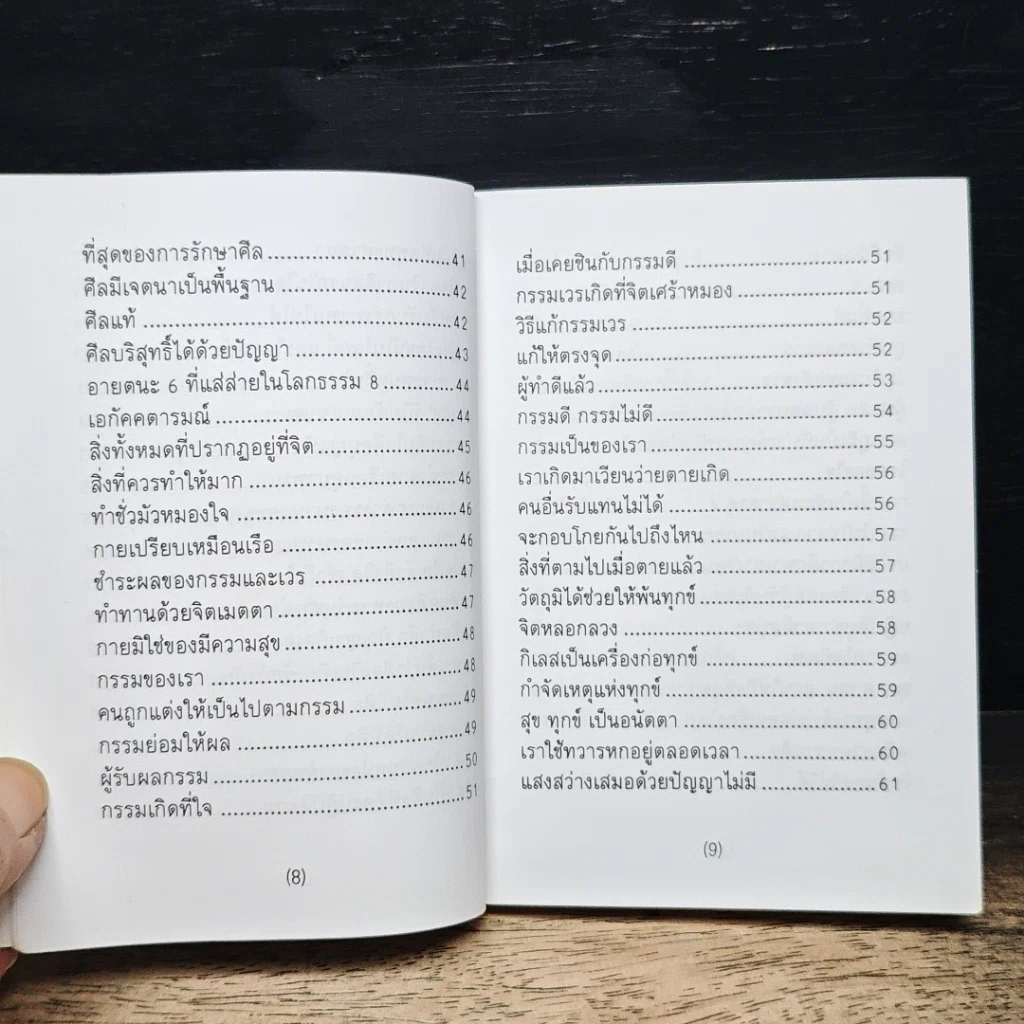 ที่สุดของการรักษาศีล....................................41
ศีลมีเจตนาเป็นพื้นฐาน ....................................42
ศีลแท้ ....................................42
ศีลบริสุทธิ์ได้ด้วยปัญญา....................................43
อายตนะ 6 ที่แส่ส่ายในโลกธรรม 8....................................44
เอกัคคตารมณ์....................................44
สิ่งทั้งหมดที่ปรากฏอยู่ที่จิต....................................45
สิ่งที่ควรทำให้มาก ....................................46
ทำชั่วมัวหมองใจ ....................................46
กายเปรียบเหมือนเรือ ....................................46
ชำระผลของกรรมและเวร ....................................47
ทำทานด้วยจิตเมตตา....................................47
กายมิใช่ของมีความสุข....................................48
กรรมของเรา ....................................48
คนถูกแต่งให้เป็นไปตามกรรม....................................49
กรรมย่อมให้ผล ....................................49
ผู้รับผลกรรม....................................50
กรรมเกิดที่ใจ ....................................51
(8)
เมื่อเคยชินกับกรรมดี ....................................51
กรรมเวรเกิดที่จิตเศร้าหมอง....................................51
วิธีแก้กรรมเวร ....................................52
แก้ให้ตรงจุด....................................52
ผู้ทำดีแล้ว....................................53
กรรมดี กรรมไม่ดี....................................54
กรรมเป็นของเรา....................................55
เราเกิดมาเวียนว่ายตายเกิด....................................56
คนอื่นรับแทนไม่ได้....................................56
จะกอบโกยกันไปถึงไหน ....................................57
สิ่งที่ตามไปเมื่อตายแล้ว....................................57
วัตถุมิได้ช่วยให้พ้นทุกข์....................................58
จิตหลอกลวง....................................58
กิเลสเป็นเครื่องก่อทุกข์ ....................................59
กำจัดเหตุแห่งทุกข์....................................59
สุข ทุกข์ เป็นอนัตตา ....................................60
เราใช้ทวารหกอยู่ตลอดเวลา....................................60
แสงสว่างเสมอด้วยปัญญาไม่มี....................................61
(9)